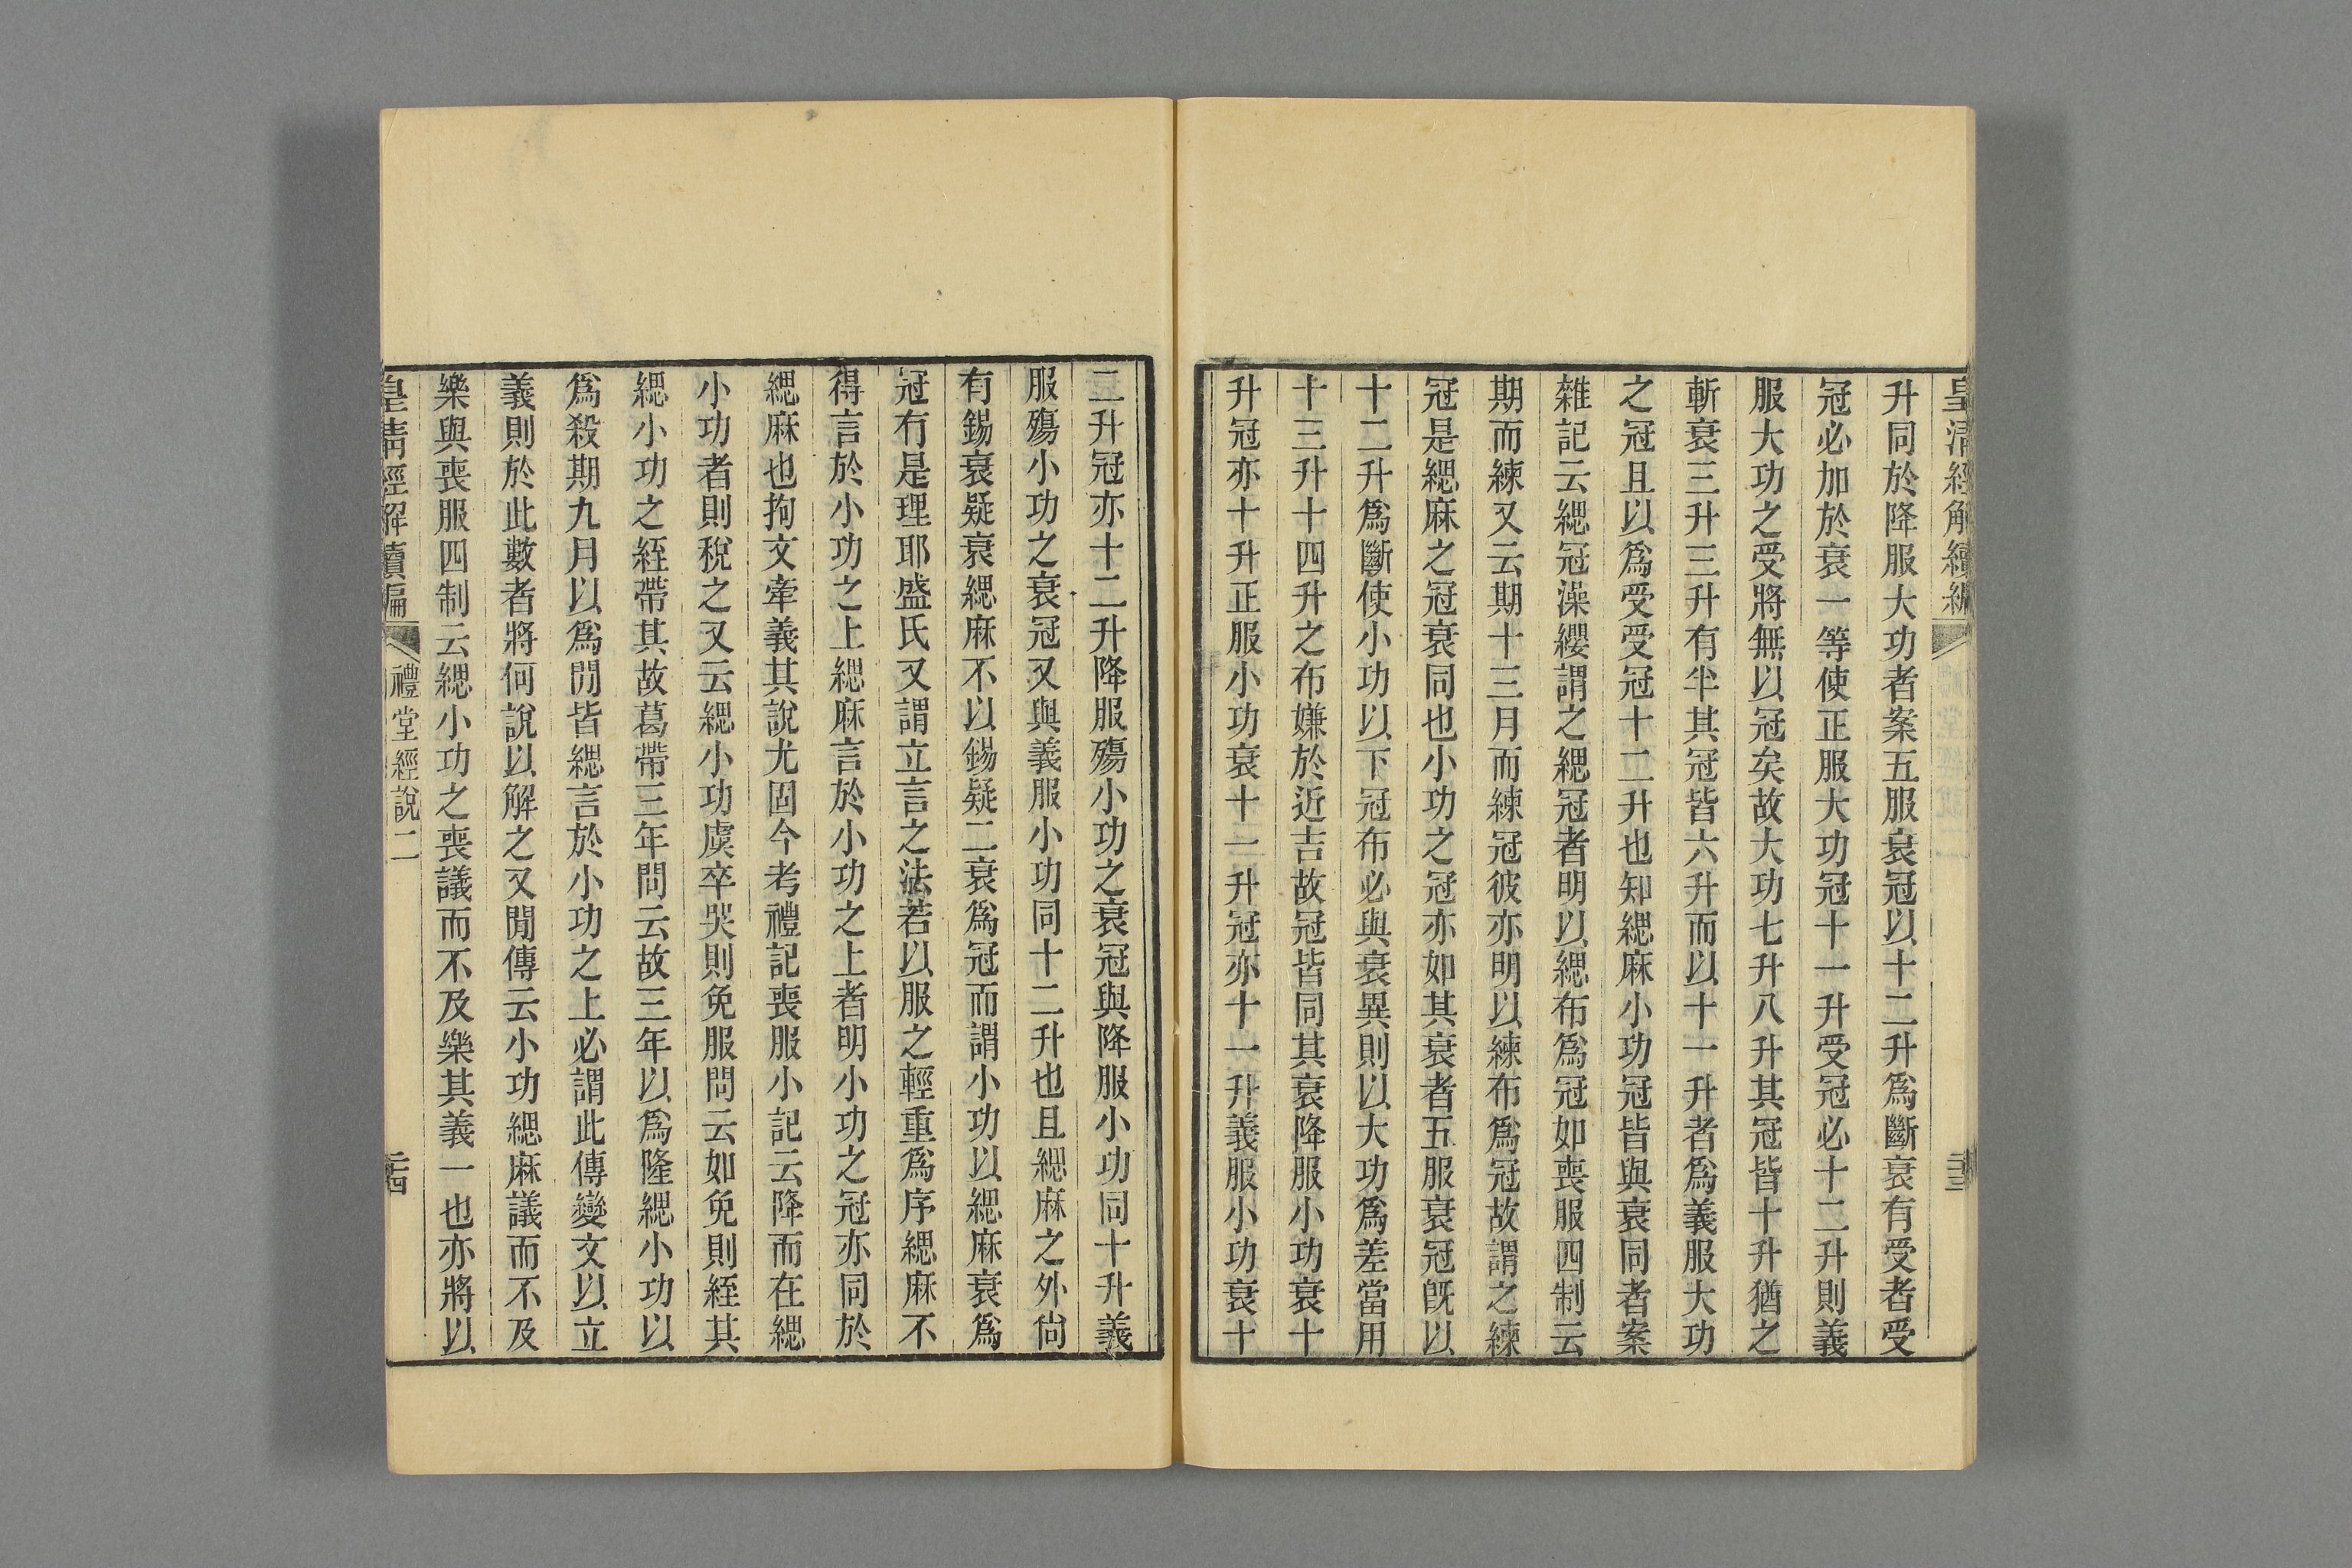 皇清經解續編
三三
升同於降服大功者案五服衰冠以十二升爲斷衰有受者受
冠必加於衰一等使正服大功冠十一升受冠必十二升則義
服大功之受將無以冠矣故大功七升八升其冠皆十升猶之
斬衰三升三升有半其冠皆六升而以十一升者爲義服大功
之冠且以爲受受冠十二升也知緦麻小功冠皆與衰同者案
雜記云緦冠澡纓謂之緦冠者明以緦布爲冠如喪服四制云
期而練又云期十三月而練冠彼亦明以練布爲冠故謂之練
冠是緦麻之冠衰同也小功之冠亦如其衰者五服衰冠旣以
十二升爲斷使小功以下冠布必與衰異則以大功爲差當用
十三升十四升之布嫌於近吉故冠皆同其衰降服小功衰十
升冠亦十升正服小功衰十一升冠亦十一升義服小功衰十
二升冠亦十二升降服殤小功之衰冠與降服小功同十升義
服殤小功之衰冠又與義服小功同十二升也且緦麻之外尙
有錫衰疑衰緦麻不以錫疑二衰爲冠而謂小功以緦麻衰爲
冠有是理耶盛氏又謂立言之法若以服之輕重爲序緦麻不
得言於小功之上緦麻言於小功之上者明小功之冠亦同於
緦麻也拘文牽義其說尤固今考禮記喪服小記云降而在緦
小功者則稅之又云緦小功虞卒哭則免服問云如免則絰其
緦小功之絰帶其故葛帶三年問云故三年以爲隆緦小功以
爲殺期九月以爲閒皆緦言於小功之上必謂此傳變文以立
義則於此數者將何說以解之又閒傳云小功緦麻議而不及
樂與喪服四制云緦小功之喪議而不及樂其義一也亦將以
皇淸經解續編
禮堂經說二
二十四